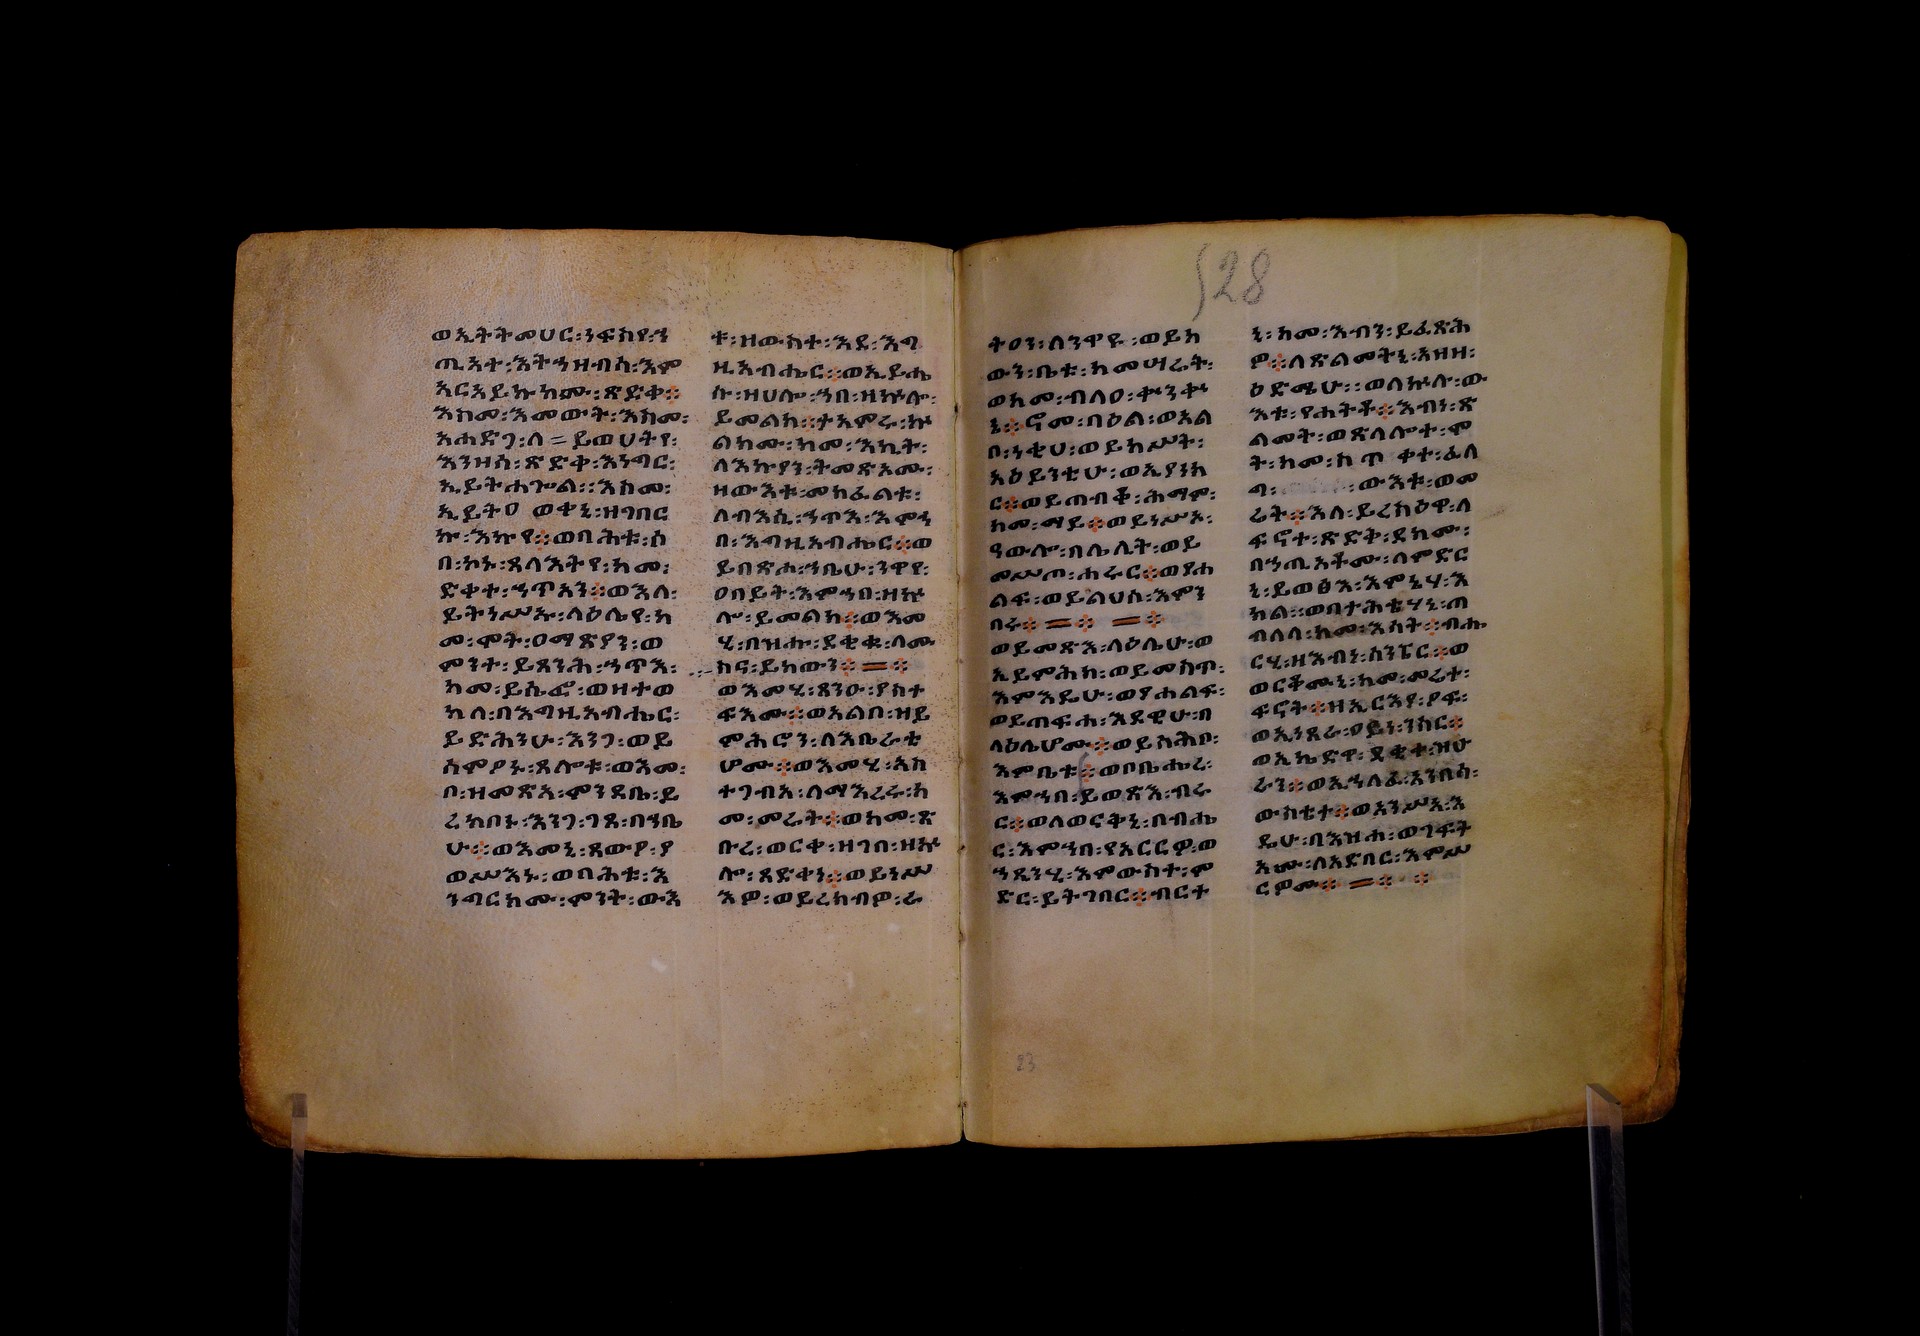 ወኢትትመሀር፡ነፍስየ፡ኀ
ጢአተ፡እትኀዘብስ፡እም
አርአይኩክሙ፡ጽድቀ፨
እስመ፡እመውት፡እስመ፡
አሐድገ፡ለ፡ይወሀትየ፡
እንዘስ፡ጽድቀ፡እነግር፡
ኢይትሐጐል፡፡እስመ፡
ኢይትዐ ወቀኒ፡ዘገበር
ኩ፡እኩየ፨ወባሕቱ፡ሰ
በ፡ኮኑ፡ጸላእትየ፡ከመ፡
ድቀተ፡ኀጥአን፨ወእለ፡
ይትነሥኡ፡ላዕሌየ፡ከ
መ፡ሞት፡ዐማጽያን፡ወ
ምንተ፡ይጸንሕ፡ኀጥእ፡
ከመ፡ይሴፎ፡ወዘተወ
ከለ፡በእግዚአብሔር፡
ይድሕንሁ፡እንጋ፡ወይ
ሰምዖኑ፡ጸሎቱ፡ወእመ፡
ቦ፡ዘመጽአ፡ምንዳቤ፡ይ
ረክቦኑ፡እንጋ፡ገጸ፡በኀቤ
ሁ፨ወእመኒ፡ጸውዖ፡ያ
ወሥእኑ፡ወባሕቱ፡እ
ነግርክሙ፡ምንት፡ውእ
ቱ፡ዘውስተ፡እደ፡እግ
ዚአብሔር፨ወኢይሔ
ሱ፡ዘሀሎ፡ኀበ፡ዘኵሎ፡
ይመልክ፨ተአምሩ፡ኵ
ልክሙ፡ከመ፡እኪት፡
ለእኩያን፡ትመጽአሙ፡
ዝውእቱ፡መክፈልቱ፡
ለብእሲ፡ኀጥእ፡እምኀ
በ፡እግዚአብሔር፨ወ
ይበጽሐ፡ኀቤሁ፡ንዋየ፡
ዐበይት፡እምኀበ፡ዘኵ
ሎ፡ይመልክ፨ወእመ
ሂ፡በዝሑ፡ደቂቁ፡ለሙ
ስና፡ይከውን፨
ወእመሂ፡ጸንዑ፡ያስተ
ፍእሙ፨ወአልቦ፡ዘይ
ምሕሮን፡ለእቤራቲ
ሆሙ፨ወእመሂ፡አስ
ተጋብአ፡ለማእረሩ፡ከ
መ፡መሬት፨ወከመ፡ጽ
ቡረ፡ወርቀ፡ዘገበ፡ዘኵ
ሎ፡ጻድቀን፨ወይነሥ
እዎ፡ወይረክብዎ፡ራ
ትዐን፡ለንዋዩ፡ወይከ
ውን፡ቤቱ፡ከመሣሬት፡
ወከመ፡ብላዐ፡ቍንቍ
ኔ፨ኖመ፡በዕል፡ወአል
ቦ፡ነቂሀ፡ወይከሥት፡
አዕይንቲሁ፡ወኢያነክ
ር፨ወይጠብቆ፡ሕማም፡
ከመ፡ማይ፨ወይነሥኦ፡
ዓውሎ፡በሌሊት፡ወይ
መሥጦ፡ሐሩር፨ወያሐ
ልፍ፡ወይልህስ፡እምን
በሩ፨
ወይመጽእ፡ላዕሌሁ፡ወ
ኢይምሕክ፡ወይመስጥ፡
እምእዴሁ፡ወያሐልፍ፡
ወይጠፍሐ፡እደዊሁ፡በ
ላዕሌሆሙ፨ወይስሕቦ፡
እምቤቱ፨ወቦቤሔረ፡
እምኀበ፡ይወጽእ፡ብሩ
ር፨ወለወርቅኒ፡በብሔ
ር፡እምኀበ፡የአርርዎ፡ወ
ኀጺንሂ፡እምውስተ፡ም
ድር፡ይትገበር፨ብርተ
ኒ፡ከመ፡እብን፡ይፈጽሕ
ዎ፨ለጽልመትኒ፡አዘዘ፡
ዕድሜሁ፡፡ወለኵሉ፡ው
እቱ፡የሐትት፨እብነ፡ጽ
ልመት፡ወጽላሎተ፡ሞ
ት፡ከመ፡ከጥ ቀተ፡ፈለ
ግ፡ ውእቱ፡ወመ
ሬት፨እለ፡ይረክዕዋ፡ለ
ፍኖተ፡ጽድቅ፡ደክሙ፡
በኀጢአቶሙ፡ለምድር
ኒ፡ይወፅእ፡እምኔሃ፡እ
ክል፨ወበተሕቴሃኒ፡ጠ
ብለለ፡ከመ፡እሳት፨ብሔ
ርሂ፡ዘእብነ፡ሰንፔር፨ወ
ወርቆሙኒ፡ከመ፡መሬተ፡
ፍኖት፨ዘኢርእያ፡ዖፍ፡
ወኢነጸራ፡ዐይነ፡ንስር፨
ወኢኬድዋ፡ደቂቀ፡ዝሁ
ራን፨ወኢኀለፈ፡አንበሳ፡
ውስቴታ፨ወአንሥአ፡እ
ዴሁ፡በእዝሐ፡ወገፍት
አሙ፡ለአድባር፡እምሥ
ርዎሙ፨
528
23